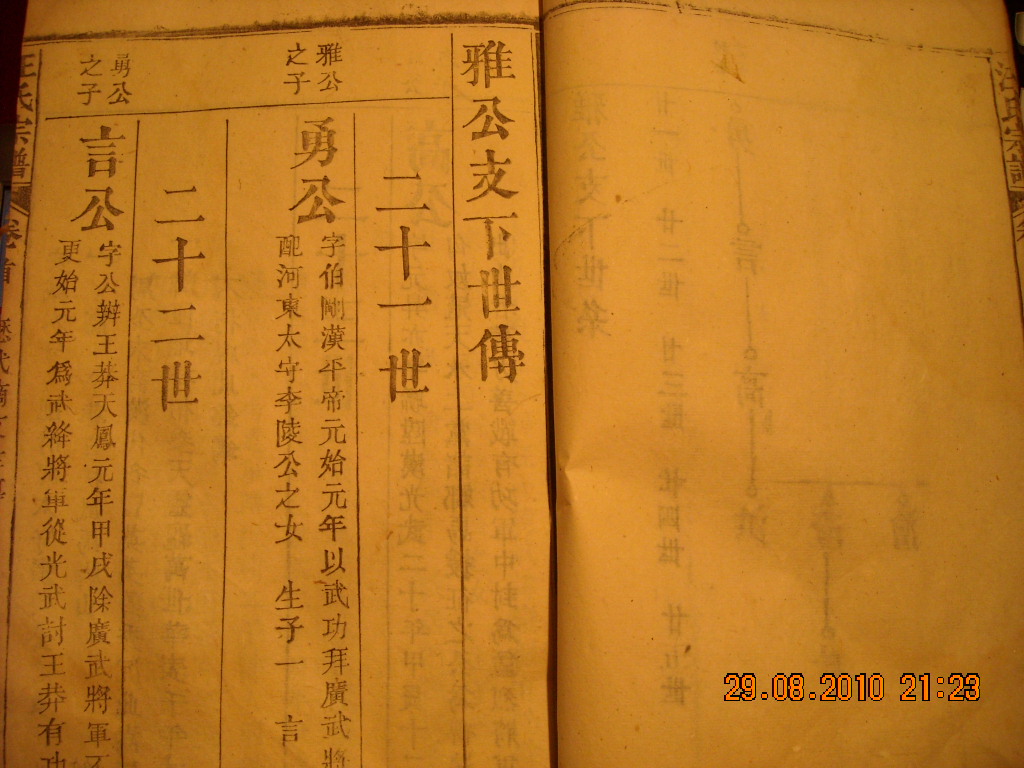 雅公支下世傳
二十一世
雅公
之子
勇公
字伯剛漢平帝元始元年以武功拜廣武將
配河東太守李陵公之女 生子一 言
二十二世
勇公
之子
言公
字公辨王莽天鳳元年甲戌除廣武將軍不
更始元年為武鋒將軍從光武討王莽有功
汪氏宗譜
卷首
29.08.2010 21:23